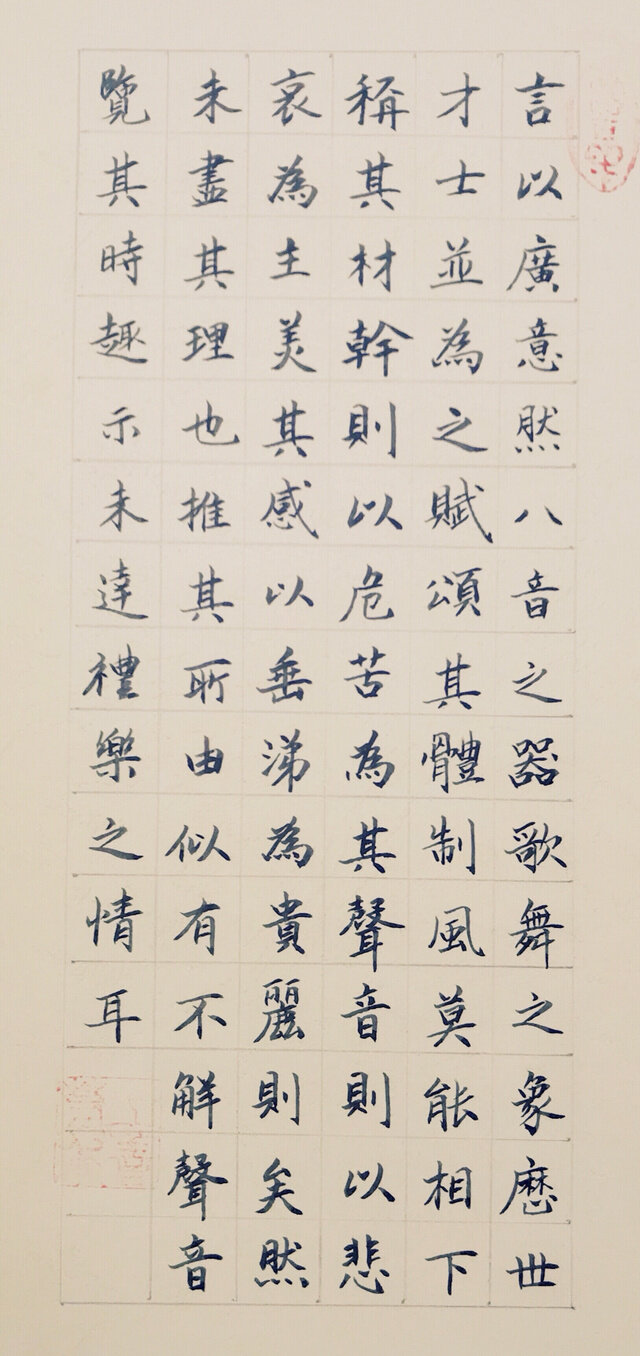 言以廣意然八音之器歌舞之象歷世
才士並為之賦頌其體制風莫能相下
稱其材幹則以危苦為其聲音則以悲
哀為主美其感以垂涕為貴麗則矣然
未盡其理也推其所由似有不解聲音
覽其時趣示未達禮樂之情耳